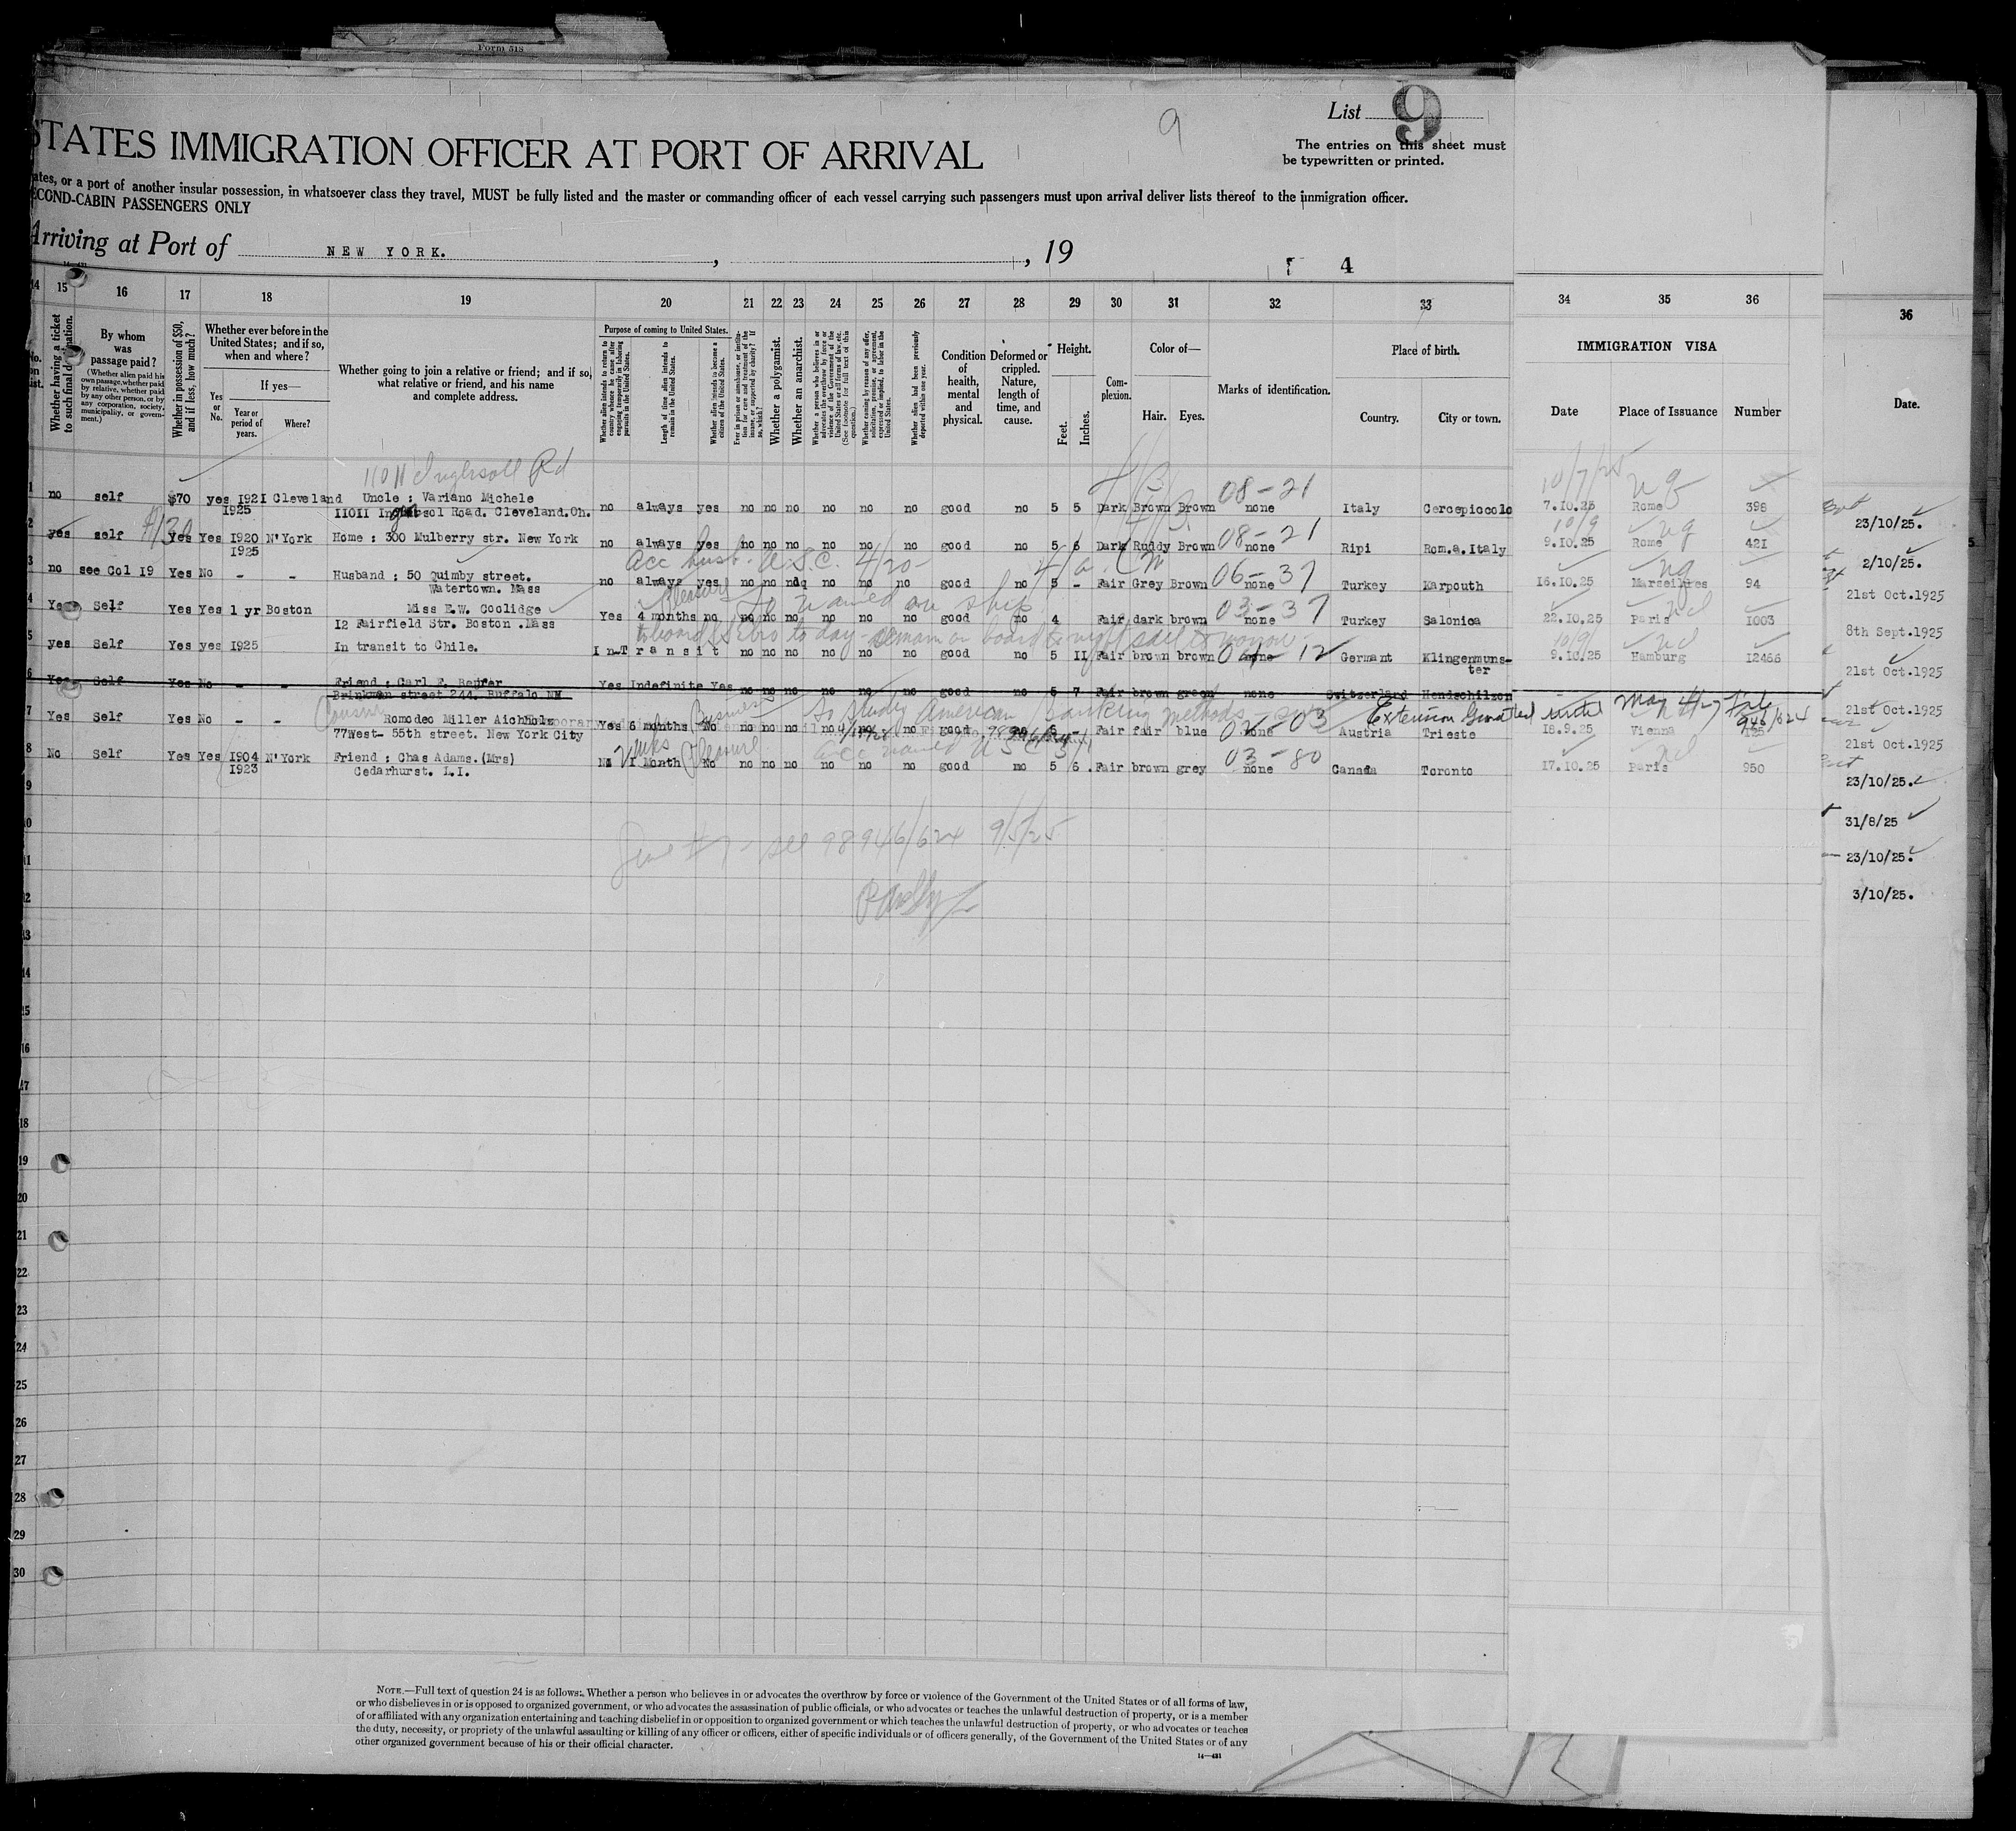 Form 518
List 9
9
The entries on this sheet must
be typewritten or printed.
STATES IMMIGRATION OFFICER AT PORT OF ARRIVAL
ates, or a port of another insular possession, in whatsoever class they travel, MUST be fully listed and the master or commanding officer of each vessel carrying such passengers must upon arrival deliver lists thereof to the immigration officer.
ECOND-CABIN PASSENGERS ONLY
Arriving at Port of NEW YORK. , , 19
4
14 15 16 17 18 19 20 21 22 23 24 25 26 27 28 29 30 31 32 33 34 35 36
36
No. on list.
Whether having a ticket to such final destination.
By whom was passage paid?
(Whether alien paid his own passage, whether paid by relative, whether paid by any other person, or by any corporation, society, municipality, or government.)
Whether in possession of $50, and if less, how much?
Whether ever before in the United States; and if so, when and where?
Yes or No.
If yes—
Year or period of years.
Where?
Whether going to join a relative or friend; and if so, what relative or friend, and his name and complete address.
Purpose of coming to United States.
Whether alien intends to return to country whence he came after engaging temporarily in laboring pursuits in the United States.
Length of time alien intends to remain in the United States.
Whether alien intends to become a citizen of the United States.
Ever in prison or almshouse, or institution for care and treatment of the insane, or supported by charity? If so, which?
Whether a polygamist.
Whether an anarchist.
Whether a person who believes in or advocates the overthrow by force or violence of the Government of the United States or all forms of law, etc. (See footnote for full text of this question.)
Whether coming by reason of any offer, solicitation, promise, or agreement, expressed or implied, to labor in the United States.
Whether alien had been previously deported within one year.
Condition of health, mental and physical.
Deformed or crippled. Nature, length of time, and cause.
Height.
Feet. Inches.
Complexion.
Color of—
Hair. Eyes.
Marks of identification.
Place of birth.
Country. City or town.
IMMIGRATION VISA
Date Place of Issuance Number
Date.
11011 Ingersoll Rd
08-21
1 no self $70 yes 1921 Cleveland Uncle : Variano Michele
1925 IIOII Ingersol Road. Cleveland.Oh. no always yes no no no no no no good no 5 5 Dark Brown Brown none Italy Cercepiccolo 7.10.25 Rome 398
08-21
2 yes self Yes Yes 1920 N'York Home : 300 Mulberry str. New York
1925 no always yes no no no no no no good no 5 6 Dark Ruddy Brown none Ripi Rom.a.Italy 9.10.25 Rome 421
acc husb. U.S.C. 4/20
06-37
3 no see Col 19 Yes No - - Husband ; 50 Quimby street.
Watertown. Mass no always yes no no no no no no good no 5 - Fair Grey Brown none Turkey Marpouth 16.10.25 Marseilles 94
03-37
4 Yes Self Yes Yes 1 yr Boston Miss E.W. Coolidge
12 Fairfield Str. Boston .Mass Yes 4 months no no no no no no no good no 4 Fair dark brown none Turkey Salonica 22.10.25 Paris 1003
5 yes Self Yes yes 1925 In transit to Chile. In Transit no no no no no no good no 5 II Fair brown brown none Germant Klingenmuns-
ter 9.10.25 Hamburg 12466
6 Yes Self Yes No - - Friend ; Carl E. Reufer
Brinkman street 244. Buffalo NY Yes Indefinite Yes no no no no no no good no 5 7 Fair brown green none Switzerland Hendschilzon
to study American banking methods
Extension Granted until May 4/27 File
946/624
7 Yes Self Yes No - - Romodeo Miller Aichholz
77West- 55th street. New York City Yes 6 months No no no no no no no good Fair fair blue none Austria Trieste 18.9.25 Vienna
acc named U S C
03-80
8 No Self Yes Yes 1904 N'York Friend ; Chas Adams.(Mrs)
1923 Cedarhurst. L.I. No I Month No no no no no no no good no 5 6 Fair brown grey none Canada Toronto 17.10.25 Paris 950
see 98946/624 9/5/25
23/10/25.
2/10/25.
21st Oct.1925
8th Sept.1925
21st Oct.1925
21st Oct.1925
21st Oct.1925
23/10/25.
31/8/25
23/10/25.
3/10/25.
9
10
11
12
13
14
15
16
17
18
19
20
21
22
23
24
25
26
27
28
29
30
NOTE.—Full text of question 24 is as follows: Whether a person who believes in or advocates the overthrow by force or violence of the Government of the United States or of all forms of law,
or who disbelieves in or is opposed to organized government, or who advocates the assassination of public officials, or who advocates or teaches the unlawful destruction of property, or is a member
of or affiliated with any organization entertaining and teaching disbelief in or opposition to organized government or which teaches the unlawful destruction of property, or who advocates or teaches
the duty, necessity, or propriety of the unlawful assaulting or killing of any officer or officers, either of specific individuals or of officers generally, of the Government of the United States or of any
other organized government because of his or their official character.
14—421